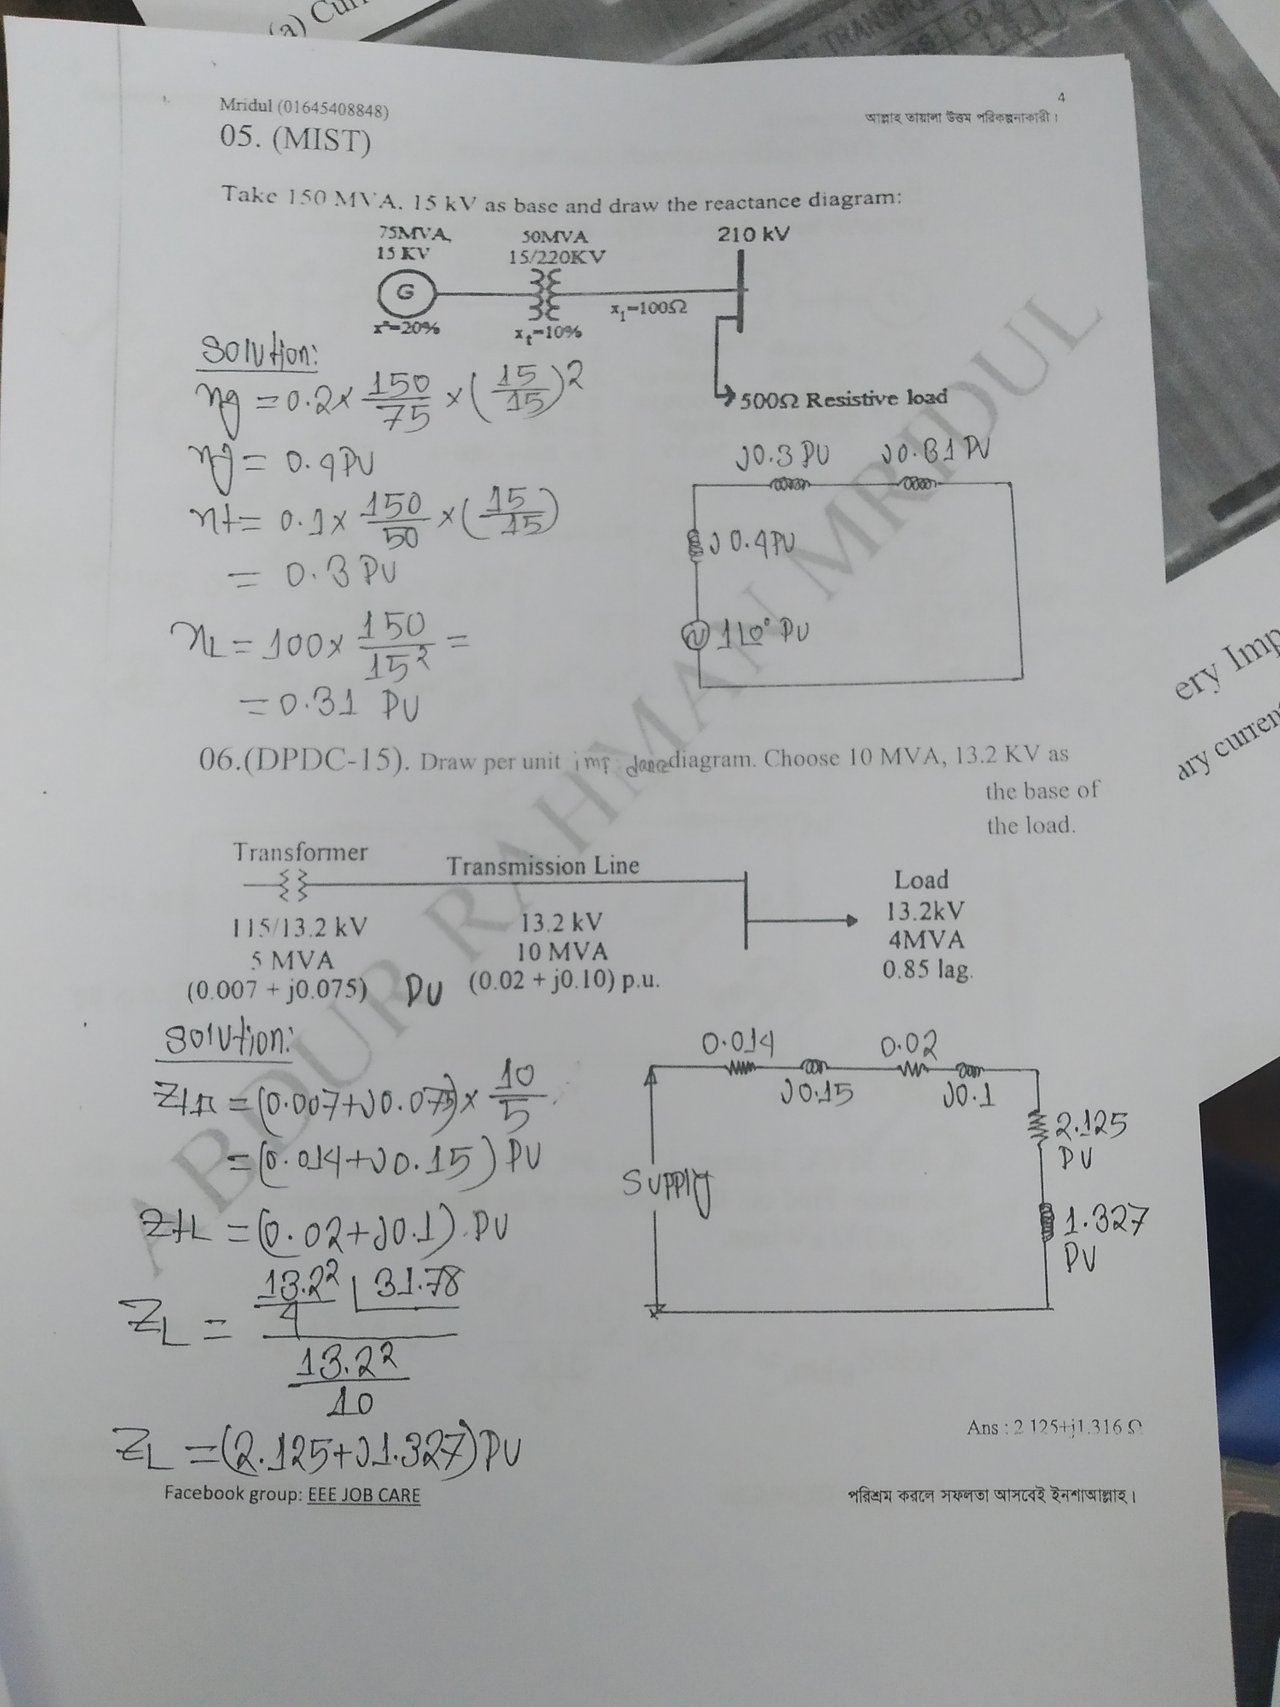 (a) Curr
Mridul (01645408848)
4
আল্লাহ তায়ালা উত্তম পরিকল্পনাকারী।
05. (MIST)
Take 150 MVA, 15 kV as base and draw the reactance diagram:
75MVA,
15 KV
50MVA
15/220KV
210 kV
G
x"=20%
xt=10%
x1=100Ω
500Ω Resistive load
Solution:
xg = 0.2 × 150/75 × (15/15)2
xg = 0.4 PU
xt = 0.1 × 150/50 × (15/15)
= 0.3 PU
xL = 100 × 150/15² =
= 0.31 PU
J0.3 PU
J0.31 PU
J0.4PU
1∠0° PU
06.(DPDC-15). Draw per unit impedance diagram. Choose 10 MVA, 13.2 KV as
the base of
the load.
Transformer
Transmission Line
Load
115/13.2 kV
5 MVA
(0.007 + j0.075) PU
13.2 kV
10 MVA
(0.02 + j0.10) p.u.
13.2kV
4MVA
0.85 lag.
Solution:
= (0.007+J0.075) × 10/5
= (0.014+J0.15) PU
ZtL = (0.02+J0.1) PU
ZL = 13.2²/4 ∠31.78
13.2²/10
ZL = (2.125+J1.327) PU
0.014
J0.15
0.02
J0.1
2.125
PU
1.327
PU
SUPPLY
Ans : 2.125+j1.316 Ω
Facebook group: EEE JOB CARE
পরিশ্রম করলে সফলতা আসবেই ইনশাআল্লাহ।
ABDUR RAHMAN MRIDUL
ery Imp
ary current